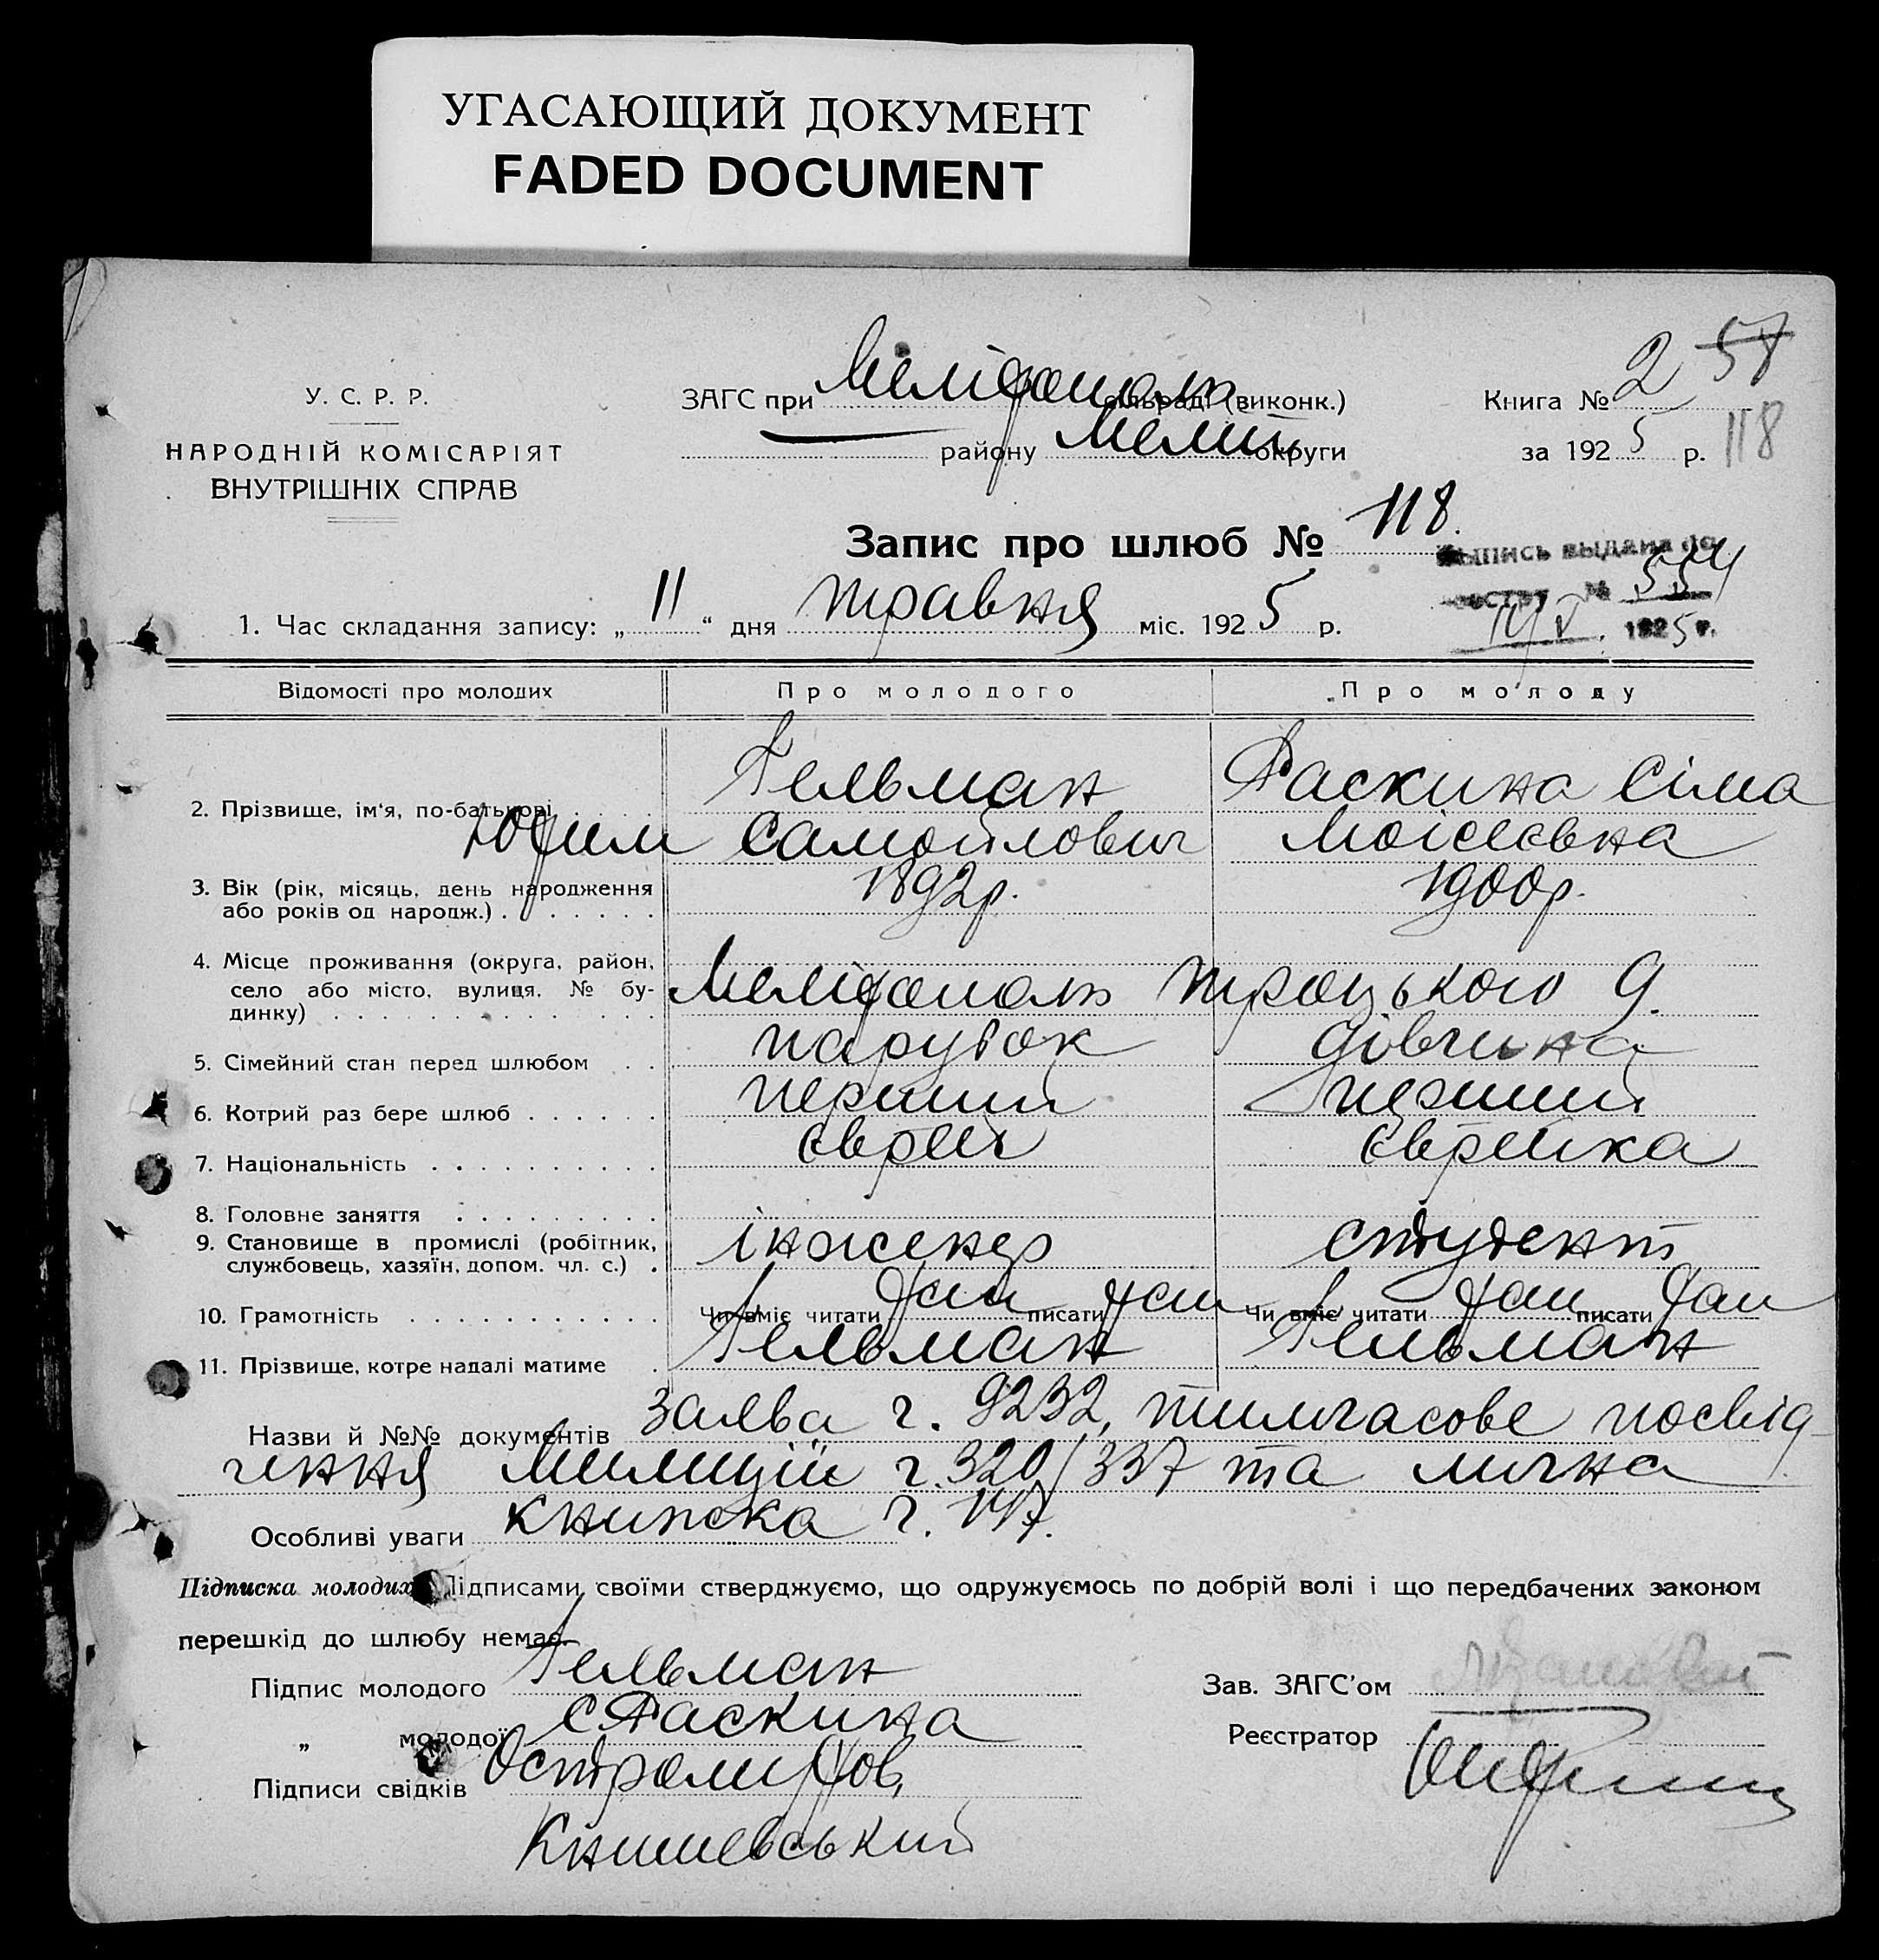 УГАСАЮЩИЙ ДОКУМЕНТ
FADED DOCUMENT
2 57
У. С. Р. Р.
ЗАГС при Мелітополь сільраді (виконк.)
Книга № 118
НАРОДНІЙ КОМІСАРІЯТ
району Мелит. округи
за 1925 р.
ВНУТРІШНІХ СПРАВ
Запис про шлюб № 118.
Выпись выдана по
реестру № 554
1. Час складання запису: „11“ дня травня міс. 1925 р.
1925 г.
Відомості про молодих
Про молодого
Про молоду
2. Прізвище, ім'я, по-батькові
Гельман
Раскина Сіма
Юфим Самойлович
Моісеєвна
3. Вік (рік, місяць, день народження
або років од народж.)
1892р.
1900р.
4. Місце проживання (округа, район,
село або місто, вулиця, № бу-
динку)
Мелітополь Троцького 9.
5. Сімейний стан перед шлюбом
парубок
дівчина
6. Котрий раз бере шлюб
перший
перший
7. Національність
єврей
єврейка
8. Головне заняття
9. Становище в промислі (робітник,
службовець, хазяїн, допом. чл. с.)
інженер
студент
10. Грамотність
Чи вміє читати так писати так
Чи вміє читати так писати так
11. Прізвище, котре надалі матиме
Гельман
Гельман
Назви й №№ документів заява ч. 9232, тимчасове посвід-
чення Милиції ч. 320/337 та лична
Особливі уваги книжка ч. 147.
Підписка молодих. Підписами своїми стверджуємо, що одружуємось по добрій волі і що передбачених законом
перешкід до шлюбу немає.
Підпис молодого Гельман
Зав. ЗАГС'ом
„ молодої С Раскина
Реєстратор
Підписи свідків